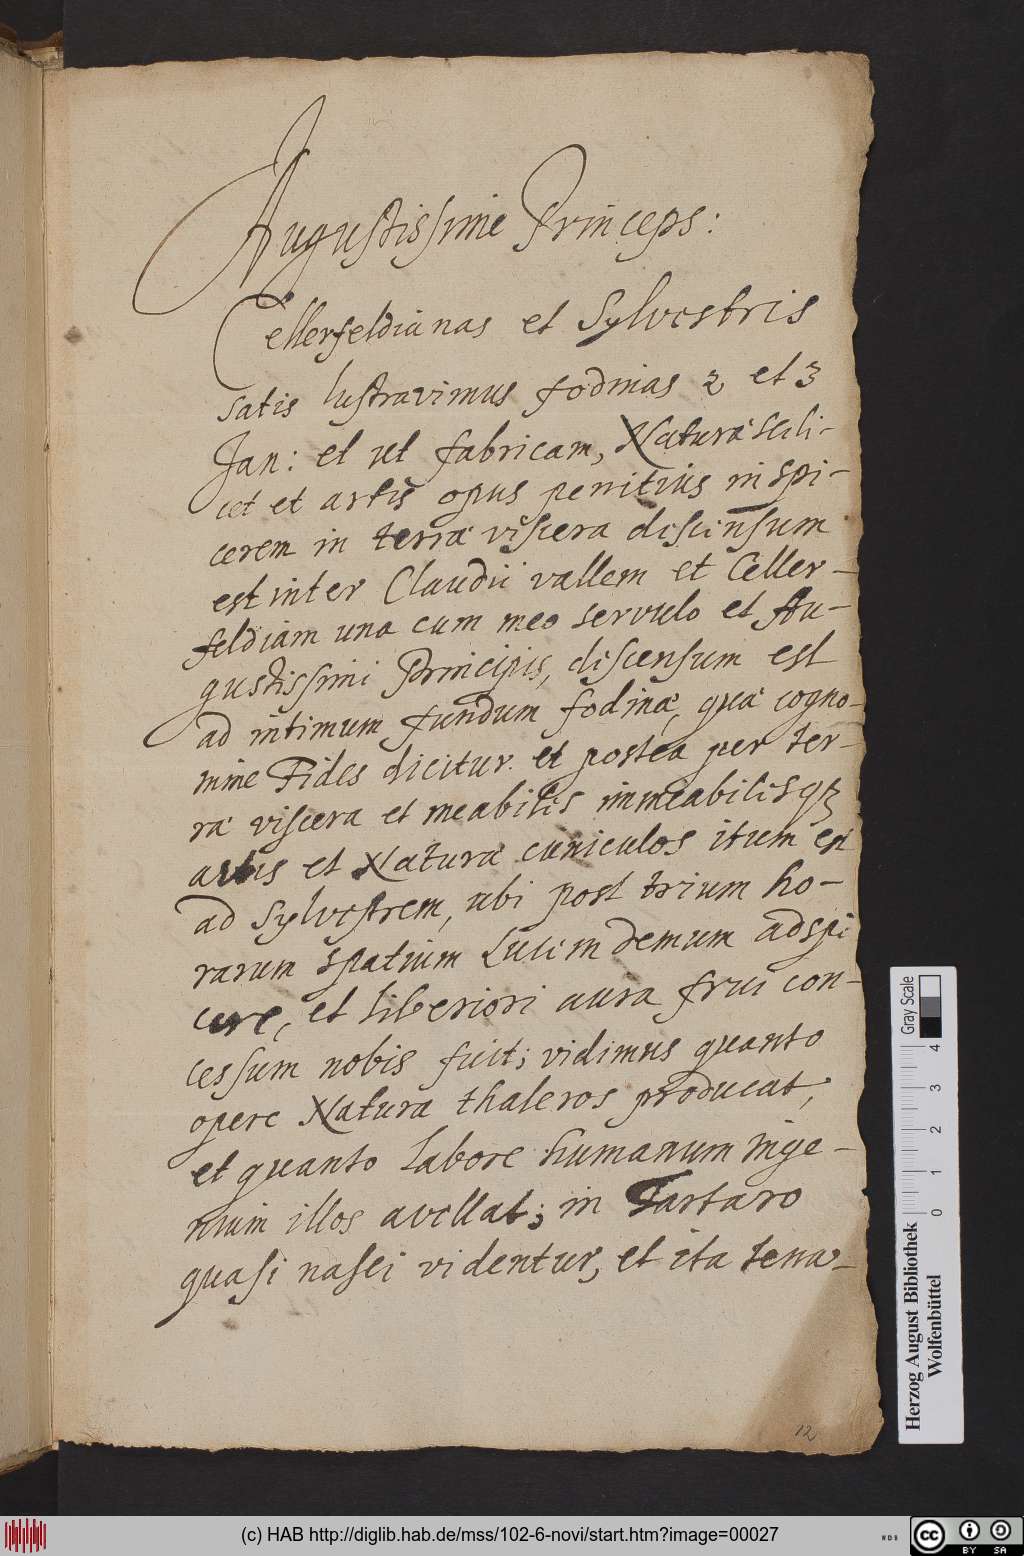 Augustissime Princeps:
Cellerfeldianas et Sylvestris
satis lustravimus fodinas 2 et 3
Jan: et ut fabricam, Naturæ scili-
cet et artis opus penitius inspi-
cerem in terræ viscera discensum
est inter Claudii vallem et Celler-
feldiam una cum meo servulo et Au-
gustissimi Principis, discensum est
ad intimum fundum fodinæ, quæ cogno-
mine Fides dicitur. et postea per ter-
ræ viscera et meabiles immeabilesqʒ
artis et Naturæ cuniculos itum est
ad Sylvestrem, ubi post trium ho-
rarum spatium Lucem demum adspi
cere, et liberiori aura frui con-
cessum nobis fuit; vidimus quanto
opere Natura thaleros producat,
et quanto labore humanum inge-
nium illos avellat; in Tartaro
quasi nasci videntur, et ita tena-
12
Herzog August Bibliothek
Wolfenbüttel
Gray Scale
0 1 2 3 4
(c) HAB http://diglib.hab.de/mss/102-6-novi/start.htm?image=00027
WDB
cc BY SA